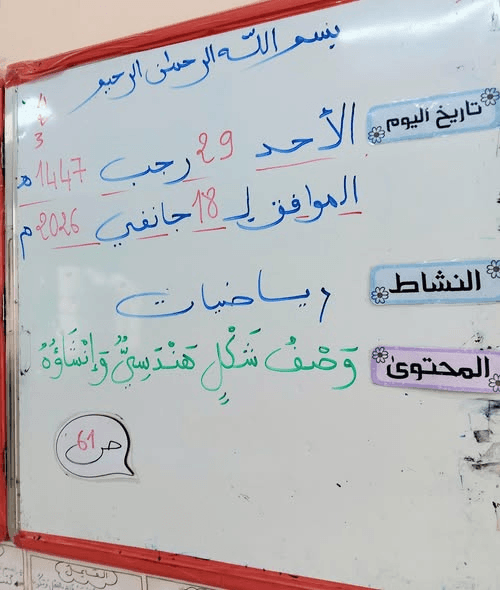 بسم الله الرحمن الرحيم
1
2
3
تاريخ اليوم
الأحد 29 رجب 1447 هـ
الموافق لـ 18 جانفي 2026 م
النشاط
رياضيات
المحتوى
وَصْفُ شَكْلٍ هَنْدَسِيٍّ وَإِنْشَاؤُهُ
ص 61